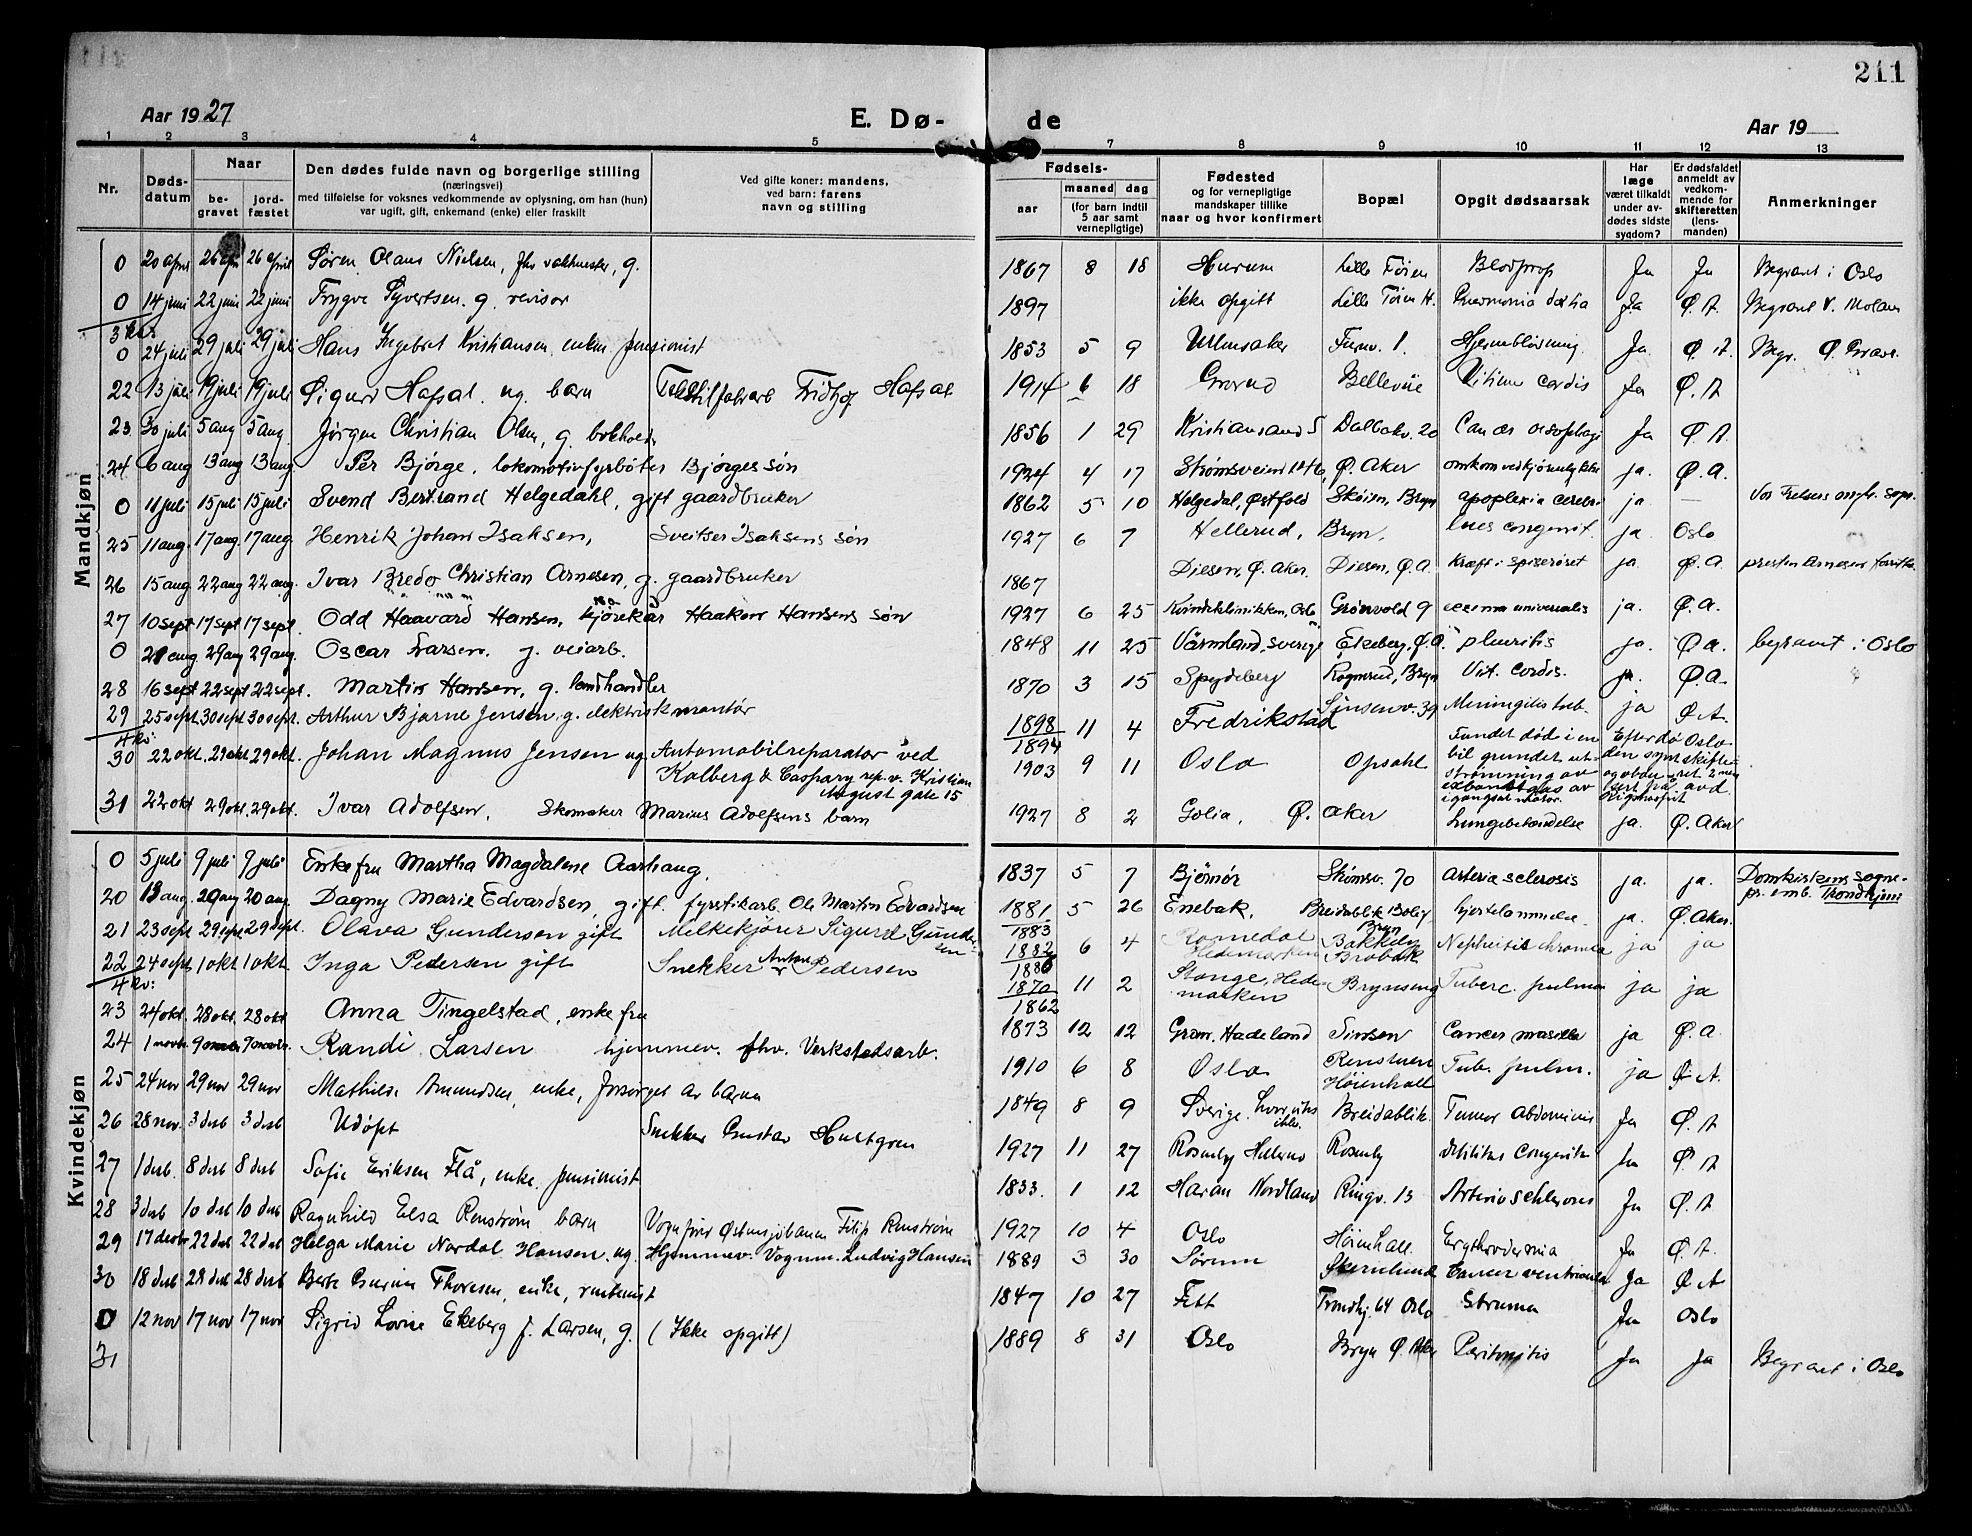 211
Aar 1927
E. Dø-
de
Aar 19
1 2 3 4 5 7 8 9 10 11 12 13
Nr.
Døds-
datum
Naar
be-
gravet
jord-
fæstet
Den dødes fulde navn og borgerlige stilling
(næringsvei)
med tilføielse for voksnes vedkommende av oplysning, om han (hun)
var ugift, gift, enkemand (enke) eller fraskilt
Ved gifte koner: mandens,
ved barn: farens
navn og stilling
Fødsels-
aar
maaned dag
(for barn indtil
5 aar samt
vernepligtige)
Fødested
og for vernepligtige
mandskaper tillike
naar og hvor konfirmert
Bopæl
Opgit dødsaarsak
Har
læge
været tilkaldt
under av-
dødes sidste
sygdom?
Er dødsfaldet
anmeldt av
vedkom-
mende for
skifteretten
(lens-
manden)
Anmerkninger
Mandkjøn
0 20 april 26 apr 26 april Søren Olaus Nielsen, fhv vaktmester, g. 1867 8 18 Hurum Lille Tøien Blodprop Ja Ja Begravet i Oslo
0 14 juni 22 juni 22 juni Trygve Syvertsen g. revisor 1897 ikke opgitt Lille Tøien H. Pneumonia Ja Ø.A. Begravet V.
3 kv:
0 24 juli 29 juli 29 juli Hans Ingebret Kristiansen, enkem. pensionist 1853 5 9 Ullensaker Furuv. 1. Hjerneblødning Ja Ø A. Begr. Ø.
22 13 juli 19 juli 19 juli Sigurd Hafsal. ug. barn Tekstilfabrarb Fridtjof Hafsal 1914 6 18 Grorud Bellevüe Vitium cordis Ja Ø.A
23 30 juli 5 aug 5 aug. Jørgen Christian Olsen, g. bokholder 1856 1 29 Kristiansand S Dalbakv. 20 Cancer oesophagi Ja Ø A.
24 6 aug 13 aug 13 aug Per Bjørge, lokomotivfyrbøter Bjørges søn 1924 4 17 Strømsveien Ø. Aker omkom ved kjøreulykke ja. Ø.A.
0 11 juli 15 juli 15 juli Svend Bertrand Helgedahl, gift gaardbruker 1862 5 10 Helgedal, Østfold Skøien, Bryn apoplexia cerebri ja — Vor Frelsers
25 11 aug. 17 aug 17 aug Henrik Johan Isaksen, Sveitser Isaksens søn 1927 6 7 Hellerud, Bryn, lues congenit. ja. Oslo
26 15 aug 22 aug 22 aug. Ivar Bredo Christian Arnesen, g. gaardbruker 1867 Diesen, Ø. aker. Diesen, Ø.A. Kræft i spiserøret ja. Ø.A. presten Arnesen
27 10 sept 17 sept 17 sept. Odd Haavard Hansen, kjørekar Haakon Hansens søn 1927 6 25 Kvindeklinikken, Oslo Grønvold 9 eczema universalis ja. Ø.A.
0 21 aug 29 aug 29 aug. Oscar Larsen. g. veiarb. 1848 11 25 Värmland, Sverige Ekeberg, Ø.A. pleuritis ja. Ø a. begravet i Oslo
28 16 sept 22 sept 22 sept. Martin Hansen, g. landhandler 1870 3 15 Spydeberg Rognrud, Bryn Vit. Cordis. ja. Ø.A.
29 25 sept 30 sept 30 sept. Arthur Bjarne Jensen, g. elektrisk montør 1898 11 4 Fredrikstad Sinsenv. 39 Meningitis tub. ja Ø A.
4 kv: 1894
30 22 okt. 29 okt. 29 okt. Johan Magnus Jensen ug Automobilreparatør ved 1903 9 11 Oslo Opsahl Fundet død i en Efter dø Oslo
Kolberg & Caspary rep. v. Kristian bil grundet ut-
August gate 15 strømning av
exhaustgas av
igangsat motor.
31 22 okt 29 okt. 29 okt. Ivar Adolfsen, Skomaker Marius Adolfsens barn 1927 8 2 Golia, Ø. aker Lungebetændelse ja. Ø. Aker
Kvindekjøn
0 5 juli 9 juli 9 juli Enkefru Martha Magdalene Aarhaug. 1837 5 7 Bjørnør Strømsv. 70 Arteria sclerosis ja. ja. Domkirkens sogne-
pr. emb. Trondhjem
20 13 aug. 20 aug 20 aug. Dagny Marie Edvardsen, gift. fyrstikarb. Ole Martin Edvardsen 1881 5 26 Enebak, Breidablik Bolig Bryn hjertelammelse ja. Ø. Aker.
1883
21 23 sept 29 sept 29 sept. Olava Gundersen gift Melkekjører Sigurd Gunder- 1882 6 4 Romedal Bakkely Nephritis chronica ja ja
sen Hedemarken Brobak
1886
22 24 sept. 1 okt 1 okt. Inga Pedersen gift Snekker Anton Pedersen 1870 11 2 Stange, Hede- Brynseng Tuberc. pulmon ja ja
marken
4 kv: 1862
23 24 okt. 28 okt. 28 okt Anna Tingelstad, enkefru 1873 12 12 Gran, Hadeland Sinsen Cancer ja Ø.A.
24 1 novbr. 9 novbr 9 novbr. Randi Larsen hjemmev. fhv. Verkstedsarb. 1910 6 8 Oslo Høienhall Tub. pulm. ja Ø A.
25 24 nov 29 nov 29 nov Mathilde Amundsen, enke, forsørget av barna 1849 8 9 Sverige. Breidablik. Tumor Abdominis Ja Ø.A
26 28 nov. 3 desb 3 desb Udøpt Snekker Gustav Hultgren 1927 11 27 Rosenly Hellerud Rosenly debilitas Congenita Ja Ø.A
27 1 desb. 8 desb 8 desb. Sofie Eriksen Flå, enke, pensionist 1833. 1 12 Nordland Ringv. 13 Arterio Schlerosis Ja Ø A
28 3 desb 10 desb 10 desb Ragnhild Elsa Renstrøm barn Vognfører Østensjøbanen Filip Renstrøm 1927 10 4 Oslo Høienhall. Erythrodermia Ja Ø.A.
29 17 desbr 22 desb 22 desb Helga Marie Nordal Hansen. ug. Hjemmev. Vognm. Ludvig Hansen 1889 3 30 Sørum Cancer ventriculi Ja Ø A
30 18 desb 28 desb 28 desb Berte Gurine Thoresen, enke, rentenist 1847 10 27 Fett Trondhj. 64 Oslo Struma Ja Oslo
0 12 nov 17 nov 17 nov Sigrid Lovise Ekeberg f. Larsen, g. (Ikke opgitt) 1889 8 31 Oslo Bryn Ø. Aker Peritonitis Ja Ja Begravet i Oslo
31